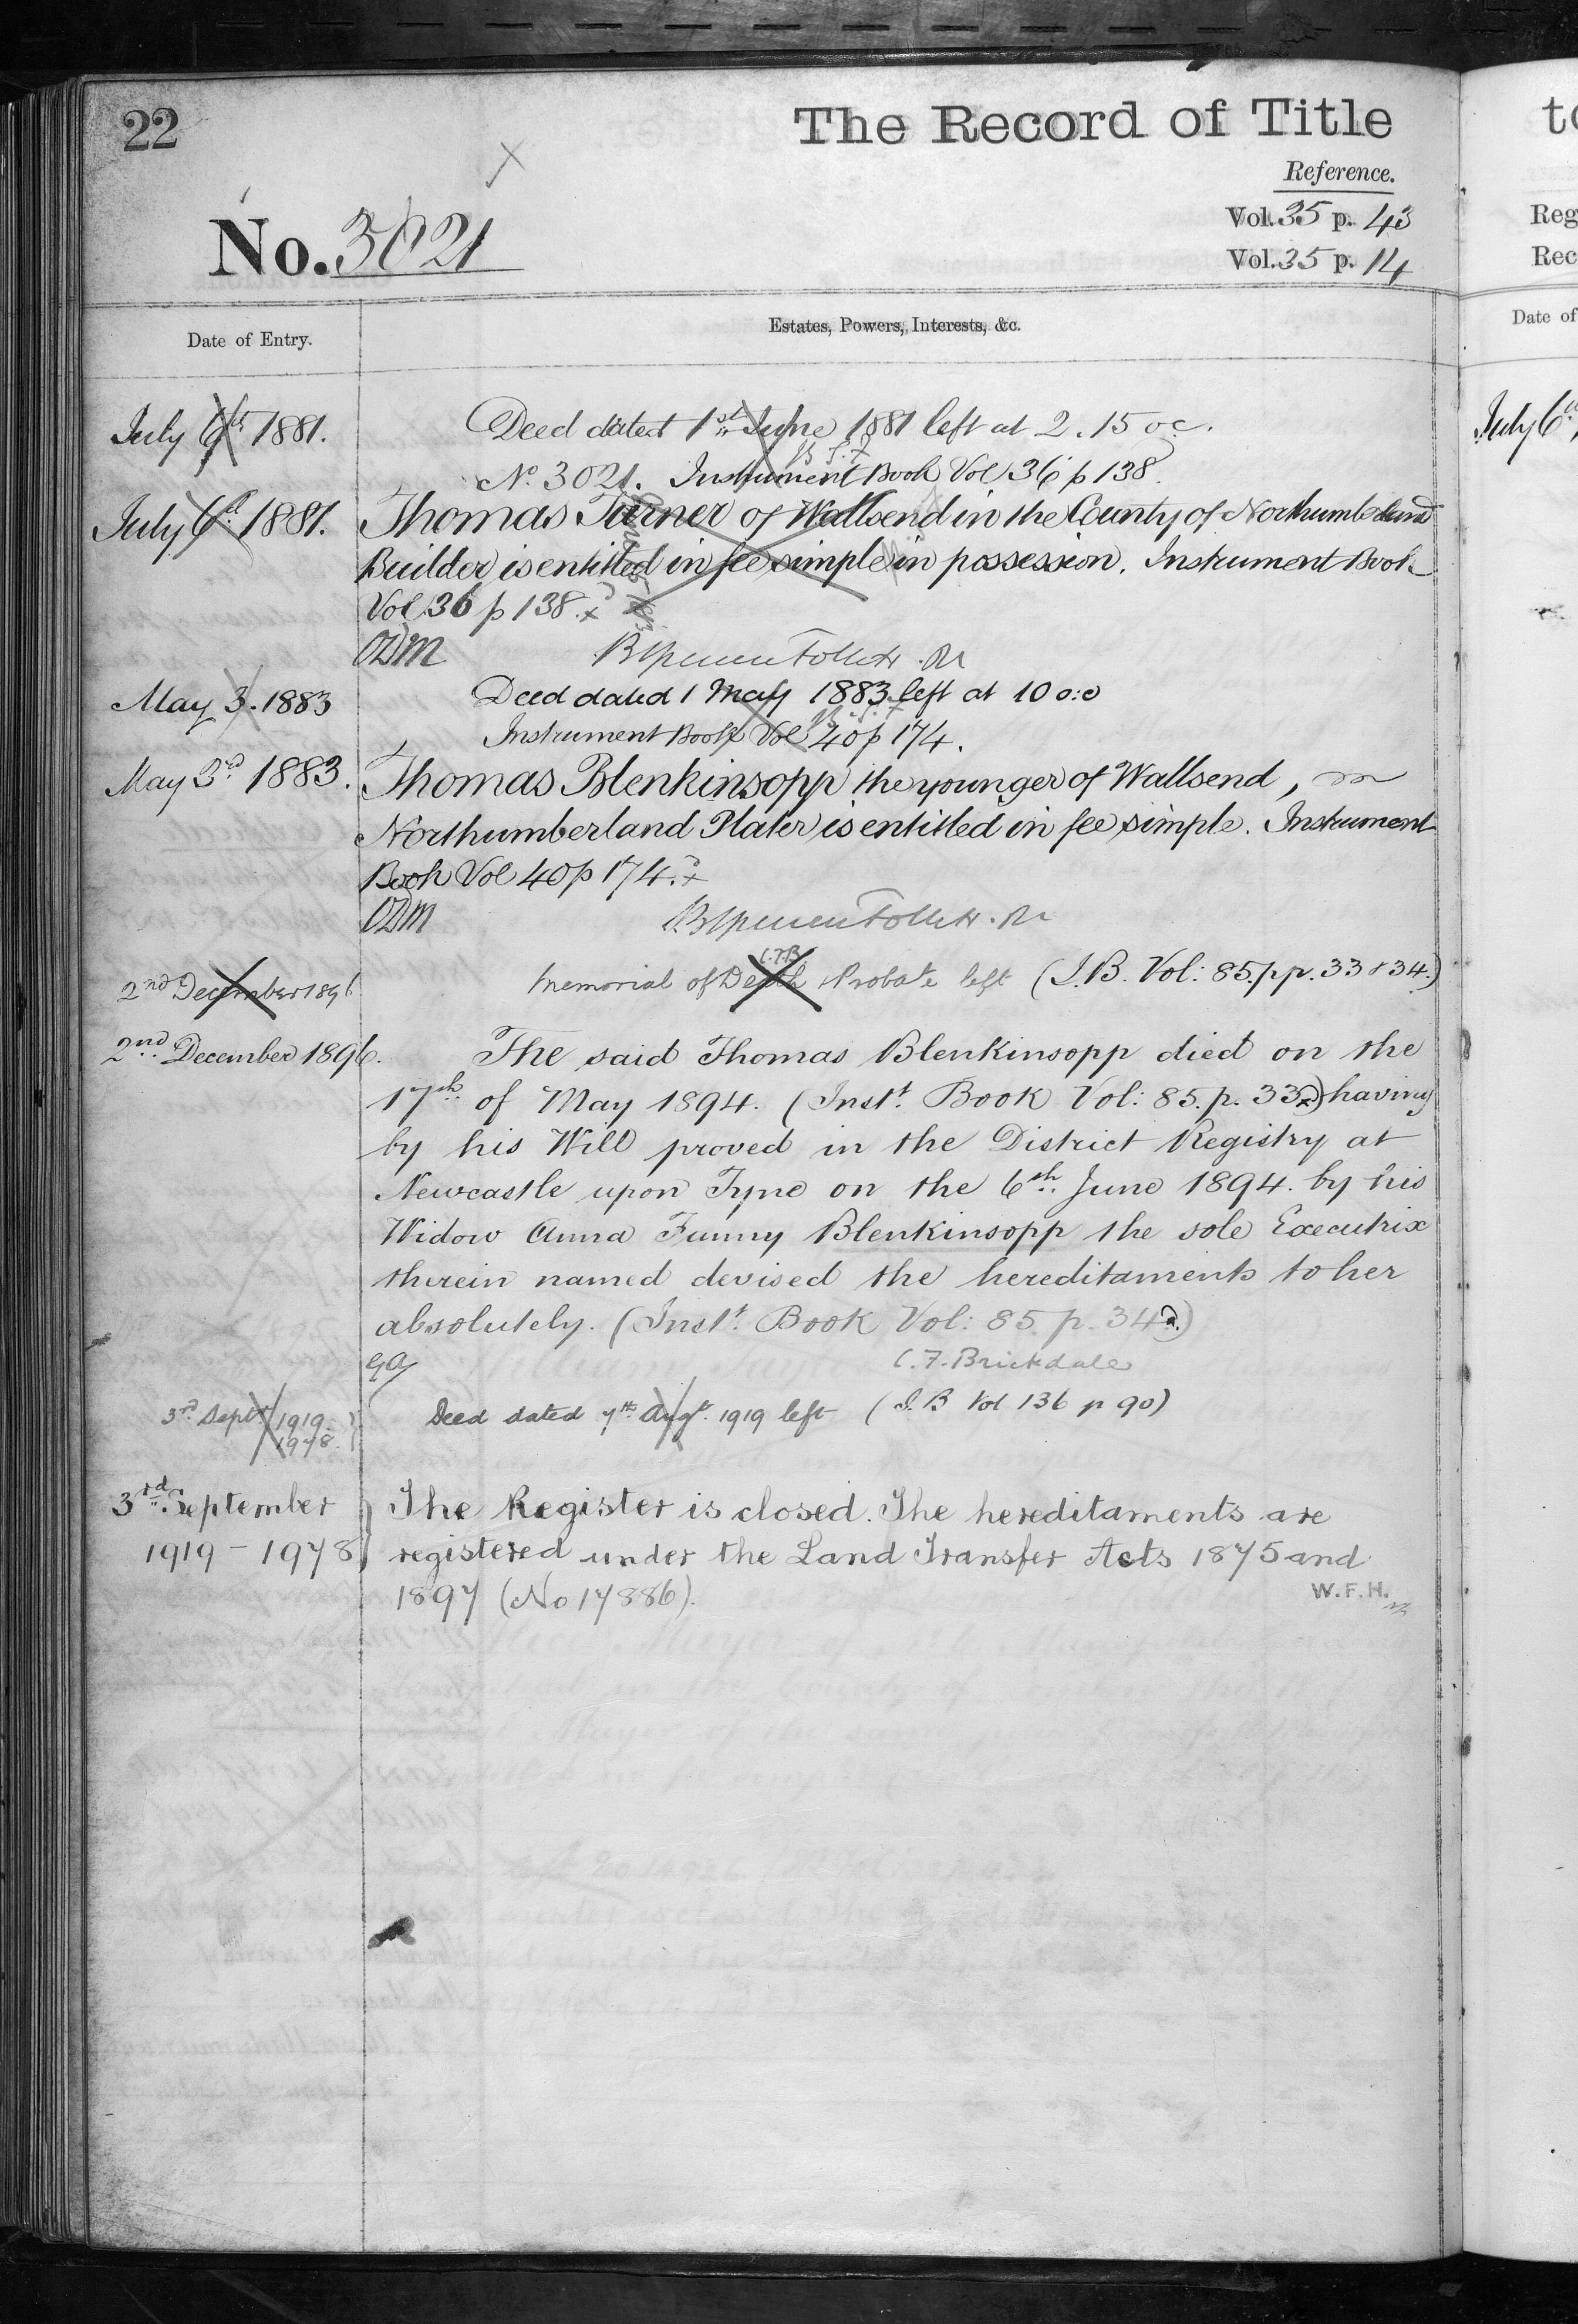 22
The Record of Title
Reference.
No. 3021
Vol. 35 p. 43
Vol. 35 p. 14
Date of Entry.
Estates, Powers, Interests, &c.
July 6th 1881. Deed dated 1st June 1881 left at 2.15 oc.
No. 3021. Instrument Book Vol 36 p 138.
July 6th 1881. Thomas Turner of Wallsend in the County of Northumberland
Builder is entitled in fee simple in possession. Instrument Book
Vol 36 p 138.
ODM
May 3. 1883 Deed dated 1 May 1883 left at 10 o:c
Instrument Book Vol 40 p 174.
May 3d 1883. Thomas Blenkinsopp the younger of Wallsend,
Northumberland Plater is entitled in fee simple. Instrument
Book Vol 40 p 174.
ODM
C.F.B.
2nd December 1896 Memorial of Death & Probate left (I.B. Vol: 85. pp. 33 & 34.)
2nd December 1896. The said Thomas Blenkinsopp died on the
17th of May 1894. (Instt. Book Vol: 85. p. 33) having
by his Will proved in the District Registry at
Newcastle upon Tyne on the 6th June 1894. by his
Widow Anna Fanny Blenkinsopp the sole Executrix
therein named devised the hereditaments to her
absolutely. (Instt. Book Vol: 85. p. 34)
C. F. Brickdale
3rd Sept 1919 Deed dated 7th Augt. 1919 left (I.B Vol 136 p 90)
1978.
3rd September The Register is closed. The hereditaments are
1919 - 1978 registered under the Land Transfer Acts 1875 and
1897 (No 17886).
W.F.H.
to
Reg
Rec
Date of
July 6th